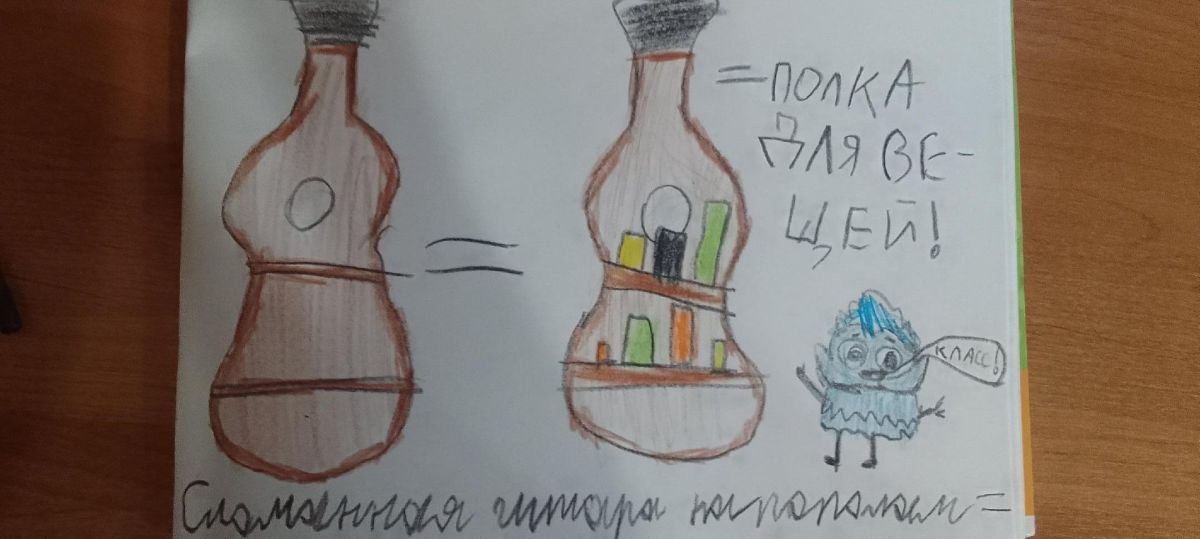 = ПОЛКА
ДЛЯ ВЕ-
ЩЕЙ!
КЛАСС!
Сломанная гитара напополам =